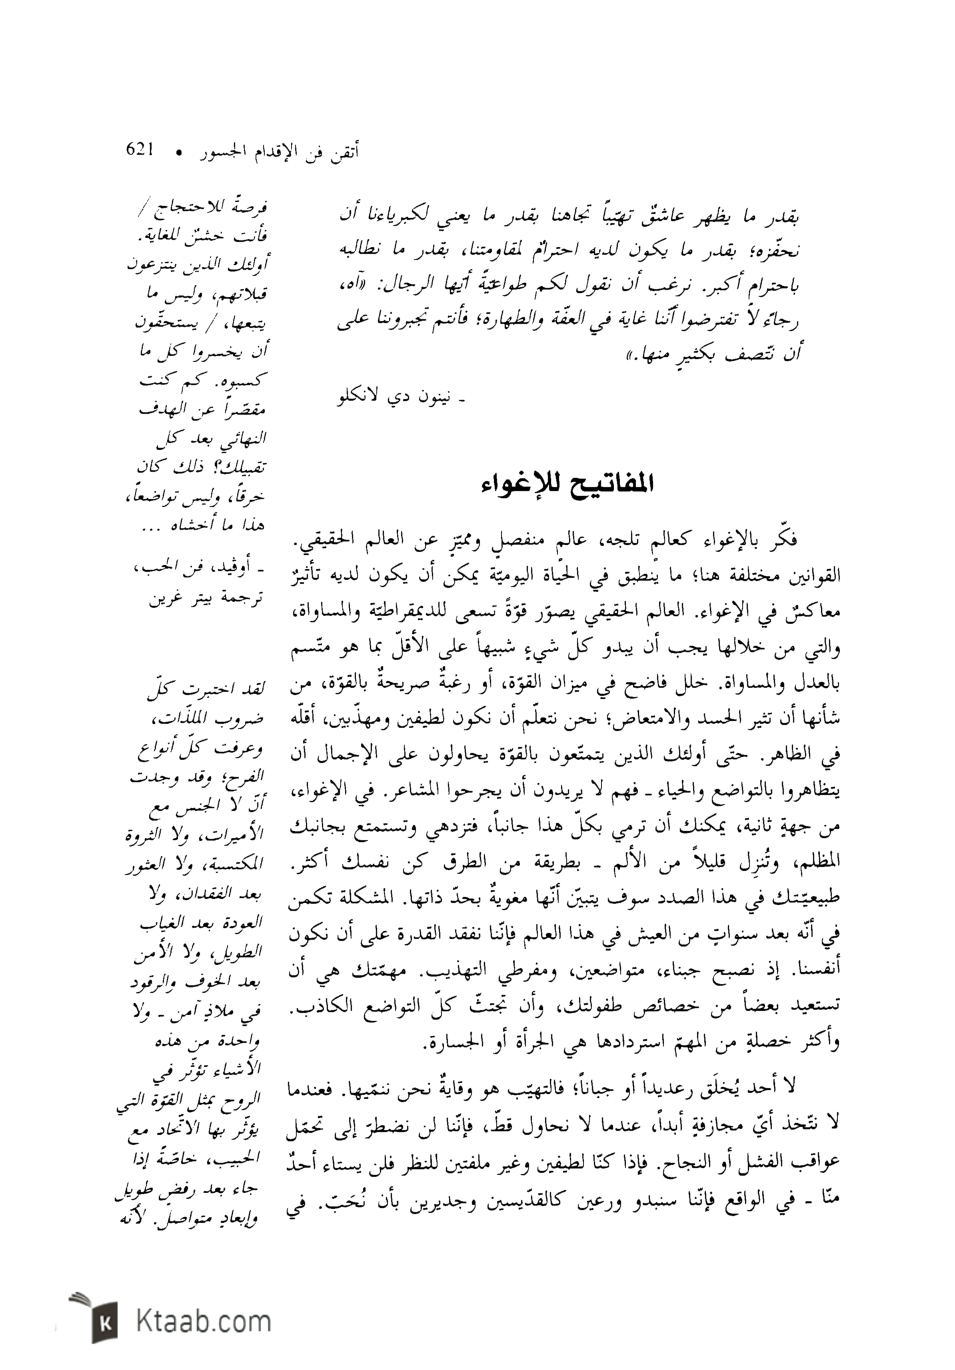 أتقن فن الإقدام الجسور • 621
بقدر ما يظهر عاشقٌ تهيّباً تجاهنا بقدر ما يعني لكبرياءنا أن
نحفّزه؛ بقدر ما يكون لديه احترامٌ لمقاومتنا، بقدر ما نطالبه
باحترام أكبر. نرغب أن نقول لكم طواعيّةً أيّها الرجال: «آه،
رجاءً لا تفترضوا أنّنا غاية في العفّة والطهارة؛ فأنتم تجبروننا على
أن نتّصف بكثيرٍ منها.»
ـ نينون دي لانكلو
المفاتيح للإغواء
فكّر بالإغواء كعالمٍ تلجه، عالمٍ منفصلٍ ومميّزٍ عن العالم الحقيقي.
القوانين مختلفة هنا؛ ما ينطبق في الحياة اليوميّة يمكن أن يكون لديه تأثيرٌ
معاكسٌ في الإغواء. العالم الحقيقي يصوّر قوّةً تسعى للديمقراطيّة والمساواة،
والتي من خلالها يجب أن يبدو كلّ شيءٍ شبيهاً على الأقلّ بما هو متّسم
بالعدل والمساواة. خلل فاضح في ميزان القوّة، أو رغبةٌ صريحةٌ بالقوّة، من
شأنها أن تثير الحسد والامتعاض؛ نحن نتعلّم أن نكون لطيفين ومهذّبين، أقلّه
في الظاهر. حتّى أولئك الذين يتمتّعون بالقوّة يحاولون على الإجمال أن
يتظاهروا بالتواضع والحياء ـ فهم لا يريدون أن يجرحوا المشاعر. في الإغواء،
من جهةٍ ثانية، يمكنك أن ترمي بكلّ هذا جانباً، فتزدهي وتستمتع بجانبك
المظلم، وتُنزِل قليلاً من الألم ـ بطريقة من الطرق كن نفسك أكثر.
طبيعيّتك في هذا الصدد سوف يتبيّن أنّها مغويةٌ بحدّ ذاتها. المشكلة تكمن
في أنّه بعد سنواتٍ من العيش في هذا العالم فإنّنا نفقد القدرة على أن نكون
أنفسنا. إذ نصبح جبناء، متواضعين، ومفرطي التهذيب. مهمّتك هي أن
تستعيد بعضاً من خصائص طفولتك، وأن تجتثّ كلّ التواضع الكاذب.
وأكثر خصلةٍ من المهمّ استردادها هي الجرأة أو الجسارة.
لا أحد يُخلَق رعديداً أو جباناً؛ فالتهيّب هو وقايةٌ نحن ننمّيها. فعندما
لا نتّخذ أيّ مجازفةٍ أبداً، عندما لا نحاول قطّ، فإنّنا لن نضطرّ إلى تحمّل
عواقب الفشل أو النجاح. فإذا كنّا لطيفين وغير ملفتين للنظر فلن يستاء أحدٌ
منّا ـ في الواقع فإنّنا سنبدو ورعين كالقدّيسين وجديرين بأن نُحَبّ. في
فرصةً للاحتجاج /
فأنت خشنٌ للغاية.
أولئك الذين ينتزعون
قبلاتهم، وليس ما
يتبعها، / يستحقّون
أن يخسروا كل ما
كسبوه. كم كنت
مقصّراً عن الهدف
النهائي بعد كل
تقبيلك؟ ذلك كان
خرقاً، وليس تواضعاً،
هذا ما أخشاه ...
ـ أوڤيد، فن الحب،
ترجمة بيتر غرين
لقد اختبرت كلّ
ضروب الملذّات،
وعرفت كلّ أنواع
الفرح؛ وقد وجدت
أنّ لا الجنس مع
الأميرات، ولا الثروة
المكتسبة، ولا العثور
بعد الفقدان، ولا
العودة بعد الغياب
الطويل، ولا الأمن
بعد الخوف والرقود
في ملاذٍ آمن ـ ولا
واحدة من هذه
الأشياء تؤثّر في
الروح بمثل القوّة التي
يؤثّر بها الاتّحاد مع
الحبيب، خاصّةً إذا
جاء بعد رفضٍ طويل
وإبعادٍ متواصل. لأنّه
K Ktaab.com